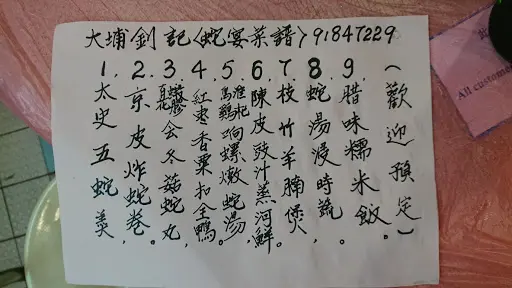 大埔釗記〈蛇宴菜譜〉91847229
1. 太史五蛇羹,
2. 京皮炸蛇卷。
3. 百花膠会冬菇蛇丸
4. 紅枣香栗扣全鴨
5. 淮杞馬鷄响螺燉蛇湯。
6. 陳皮豉汁蒸河鮮。
7. 枝竹羊腩煲。
8. 蛇湯浸時蔬。
9. 腊味糯米飯。
(歡迎預定)
All custome